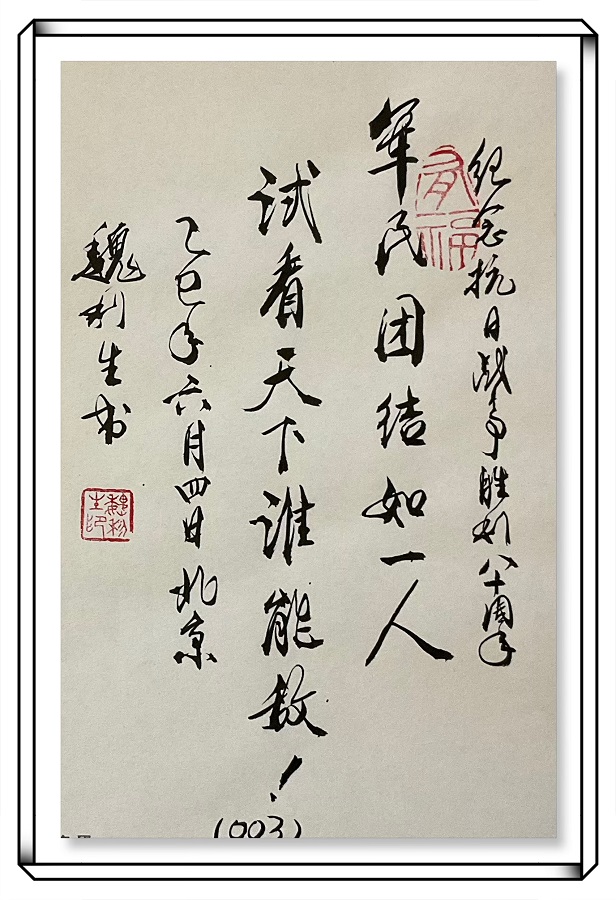 纪念抗日战争胜利八十周年
军民团结如一人
试看天下谁能敌！
乙巳年六月四日北京
魏利生书
有福
魏利生印
(003)